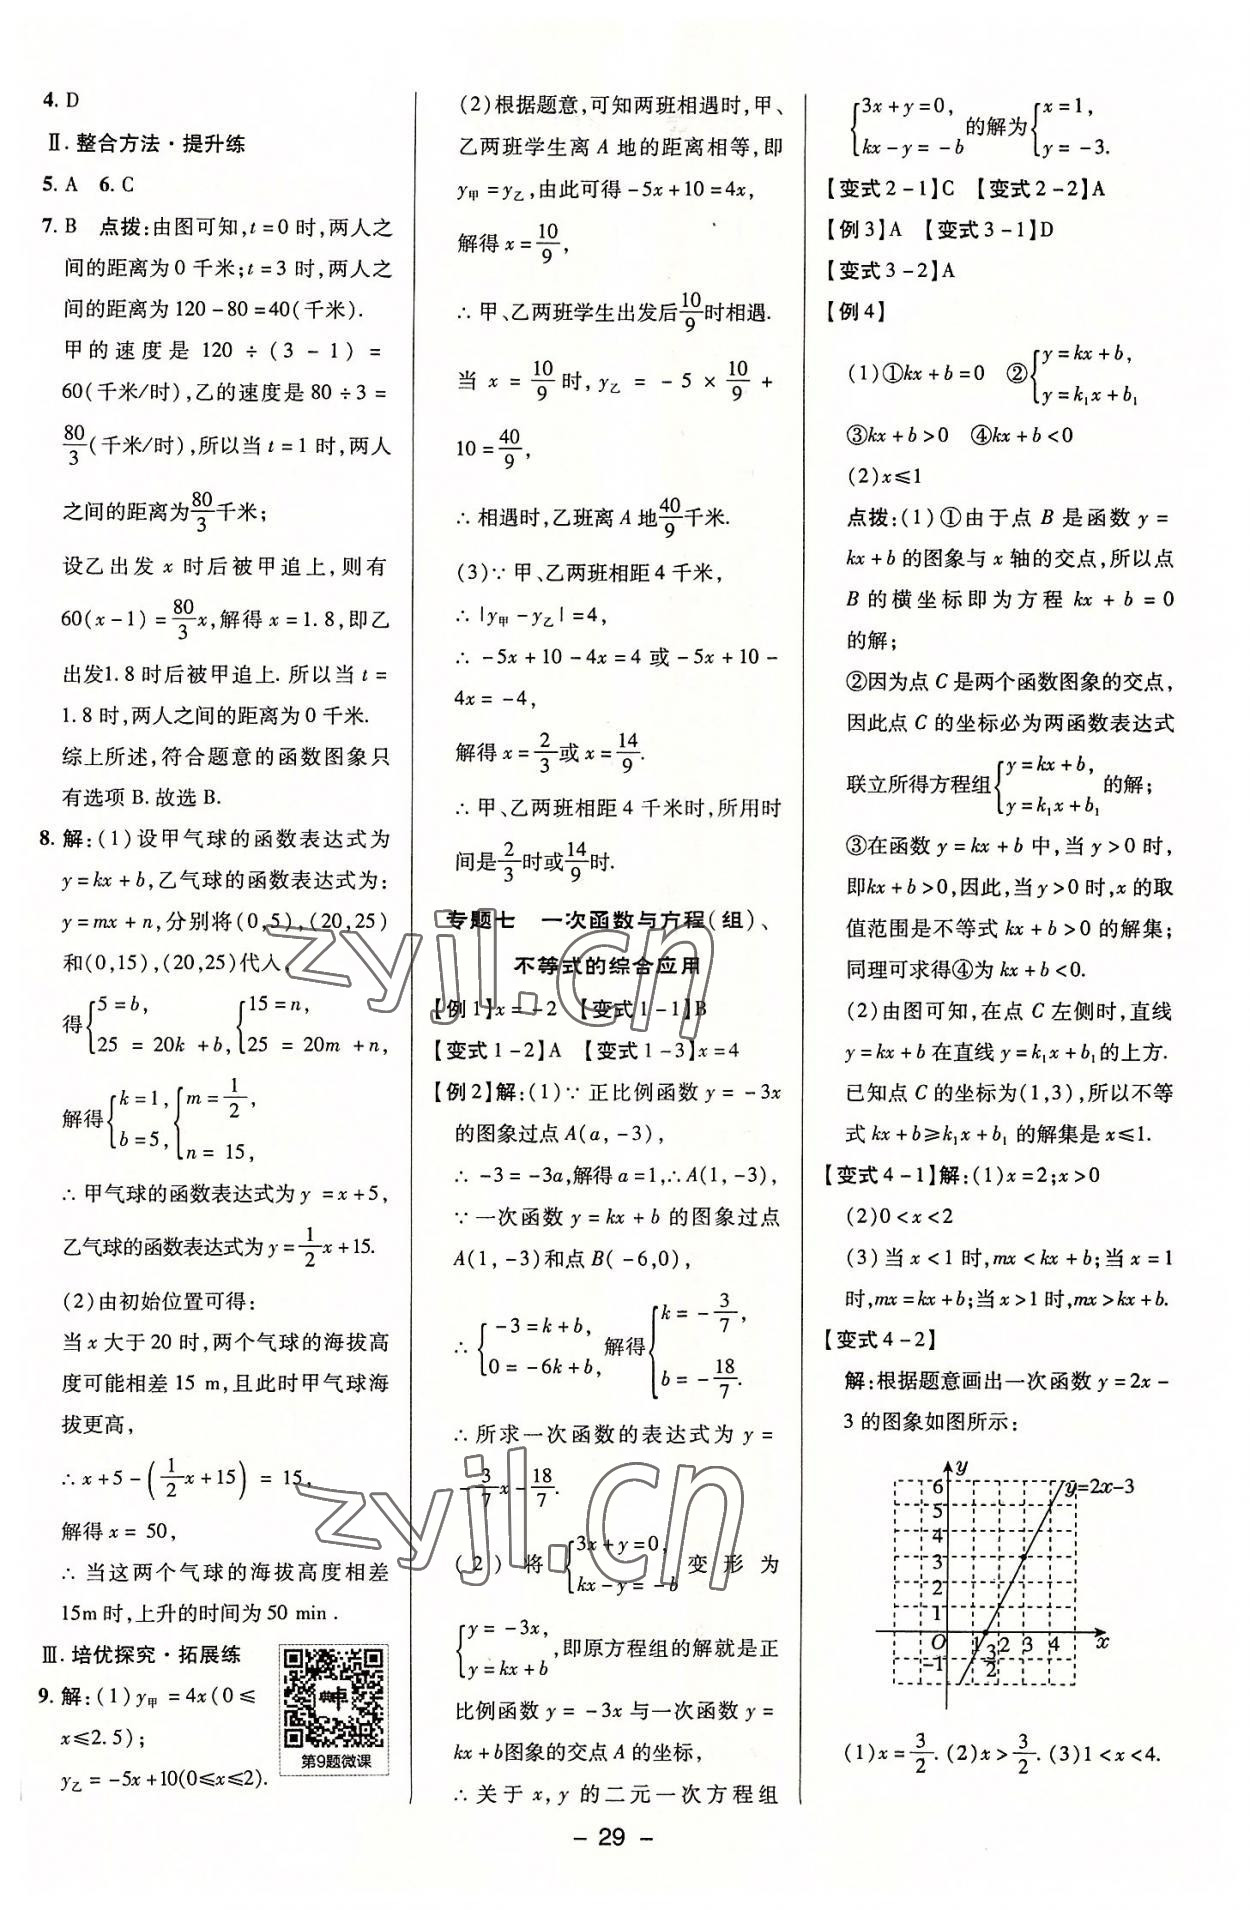 4. D
Ⅱ. 整合方法·提升练
5. A  6. C
7. B  点拨:由图可知,t=0时,两人之
间的距离为0千米;t=3时,两人之
间的距离为120-80=40(千米).
甲的速度是 120 ÷ (3 - 1) =
60(千米/时),乙的速度是80÷3=
80/3(千米/时),所以当t=1时,两人
之间的距离为80/3千米;
设乙出发x时后被甲追上,则有
60(x-1)=80/3x,解得x=1.8,即乙
出发1.8时后被甲追上.所以当t=
1.8时,两人之间的距离为0千米.
综上所述,符合题意的函数图象只
有选项B.故选B.
8. 解:(1)设甲气球的函数表达式为
y=kx+b,乙气球的函数表达式为:
y=mx+n,分别将(0,5),(20,25)
和(0,15),(20,25)代入,
得{5=b, 25=20k+b, {15=n, 25=20m+n,
解得{k=1, b=5, {m=1/2, n=15,
∴甲气球的函数表达式为y=x+5,
乙气球的函数表达式为y=1/2x+15.
(2)由初始位置可得:
当x大于20时,两个气球的海拔高
度可能相差15 m,且此时甲气球海
拔更高,
∴x+5-(1/2x+15)=15,
解得x=50,
∴当这两个气球的海拔高度相差
15m时,上升的时间为50 min.
Ⅲ. 培优探究·拓展练
9. 解:(1)y甲=4x(0≤
x≤2.5);
y乙=-5x+10(0≤x≤2).
典卓
第9题微课
(2)根据题意,可知两班相遇时,甲、
乙两班学生离A地的距离相等,即
y甲=y乙,由此可得-5x+10=4x,
解得x=10/9,
∴甲、乙两班学生出发后10/9时相遇.
当x=10/9时,y乙=-5×10/9+
10=40/9,
∴相遇时,乙班离A地40/9千米.
(3)∵甲、乙两班相距4千米,
∴|y甲-y乙|=4,
∴-5x+10-4x=4或-5x+10-
4x=-4,
解得x=2/3或x=14/9.
∴甲、乙两班相距4千米时,所用时
间是2/3时或14/9时.
专题七  一次函数与方程(组)、
不等式的综合应用
【例1】x=-2  【变式1-1】B
【变式1-2】A  【变式1-3】x=4
【例2】解:(1)∵正比例函数y=-3x
的图象过点A(a,-3),
∴-3=-3a,解得a=1,∴A(1,-3),
∵一次函数y=kx+b的图象过点
A(1,-3)和点B(-6,0),
∴{-3=k+b, 0=-6k+b, 解得{k=-3/7, b=-18/7.
∴所求一次函数的表达式为y=
-3/7x-18/7.
(2)将{3x+y=0, kx-y=-b 变形为
{y=-3x, y=kx+b ,即原方程组的解就是正
比例函数y=-3x与一次函数y=
kx+b图象的交点A的坐标,
∴关于x,y的二元一次方程组
{3x+y=0, kx-y=-b 的解为{x=1, y=-3.
【变式2-1】C  【变式2-2】A
【例3】A  【变式3-1】D
【变式3-2】A
【例4】
(1)①kx+b=0  ②{y=kx+b, y=k₁x+b₁
③kx+b>0  ④kx+b<0
(2)x≤1
点拨:(1)①由于点B是函数y=
kx+b的图象与x轴的交点,所以点
B的横坐标即为方程kx+b=0
的解;
②因为点C是两个函数图象的交点,
因此点C的坐标必为两函数表达式
联立所得方程组{y=kx+b, y=k₁x+b₁ 的解;
③在函数y=kx+b中,当y>0时,
即kx+b>0,因此,当y>0时,x的取
值范围是不等式kx+b>0的解集;
同理可求得④为kx+b<0.
(2)由图可知,在点C左侧时,直线
y=kx+b在直线y=k₁x+b₁的上方.
已知点C的坐标为(1,3),所以不等
式kx+b≥k₁x+b₁的解集是x≤1.
【变式4-1】解:(1)x=2;x>0
(2)0<x<2
(3)当x<1时,mx<kx+b;当x=1
时,mx=kx+b;当x>1时,mx>kx+b.
【变式4-2】
解:根据题意画出一次函数y=2x-
3的图象如图所示:
y
6
5
4
3
2
1
-1
O 1 3/2 2 3 4 x
y=2x-3
(1)x=3/2. (2)x>3/2. (3)1<x<4.
- 29 -
zyjl.cn
zyjl.cn